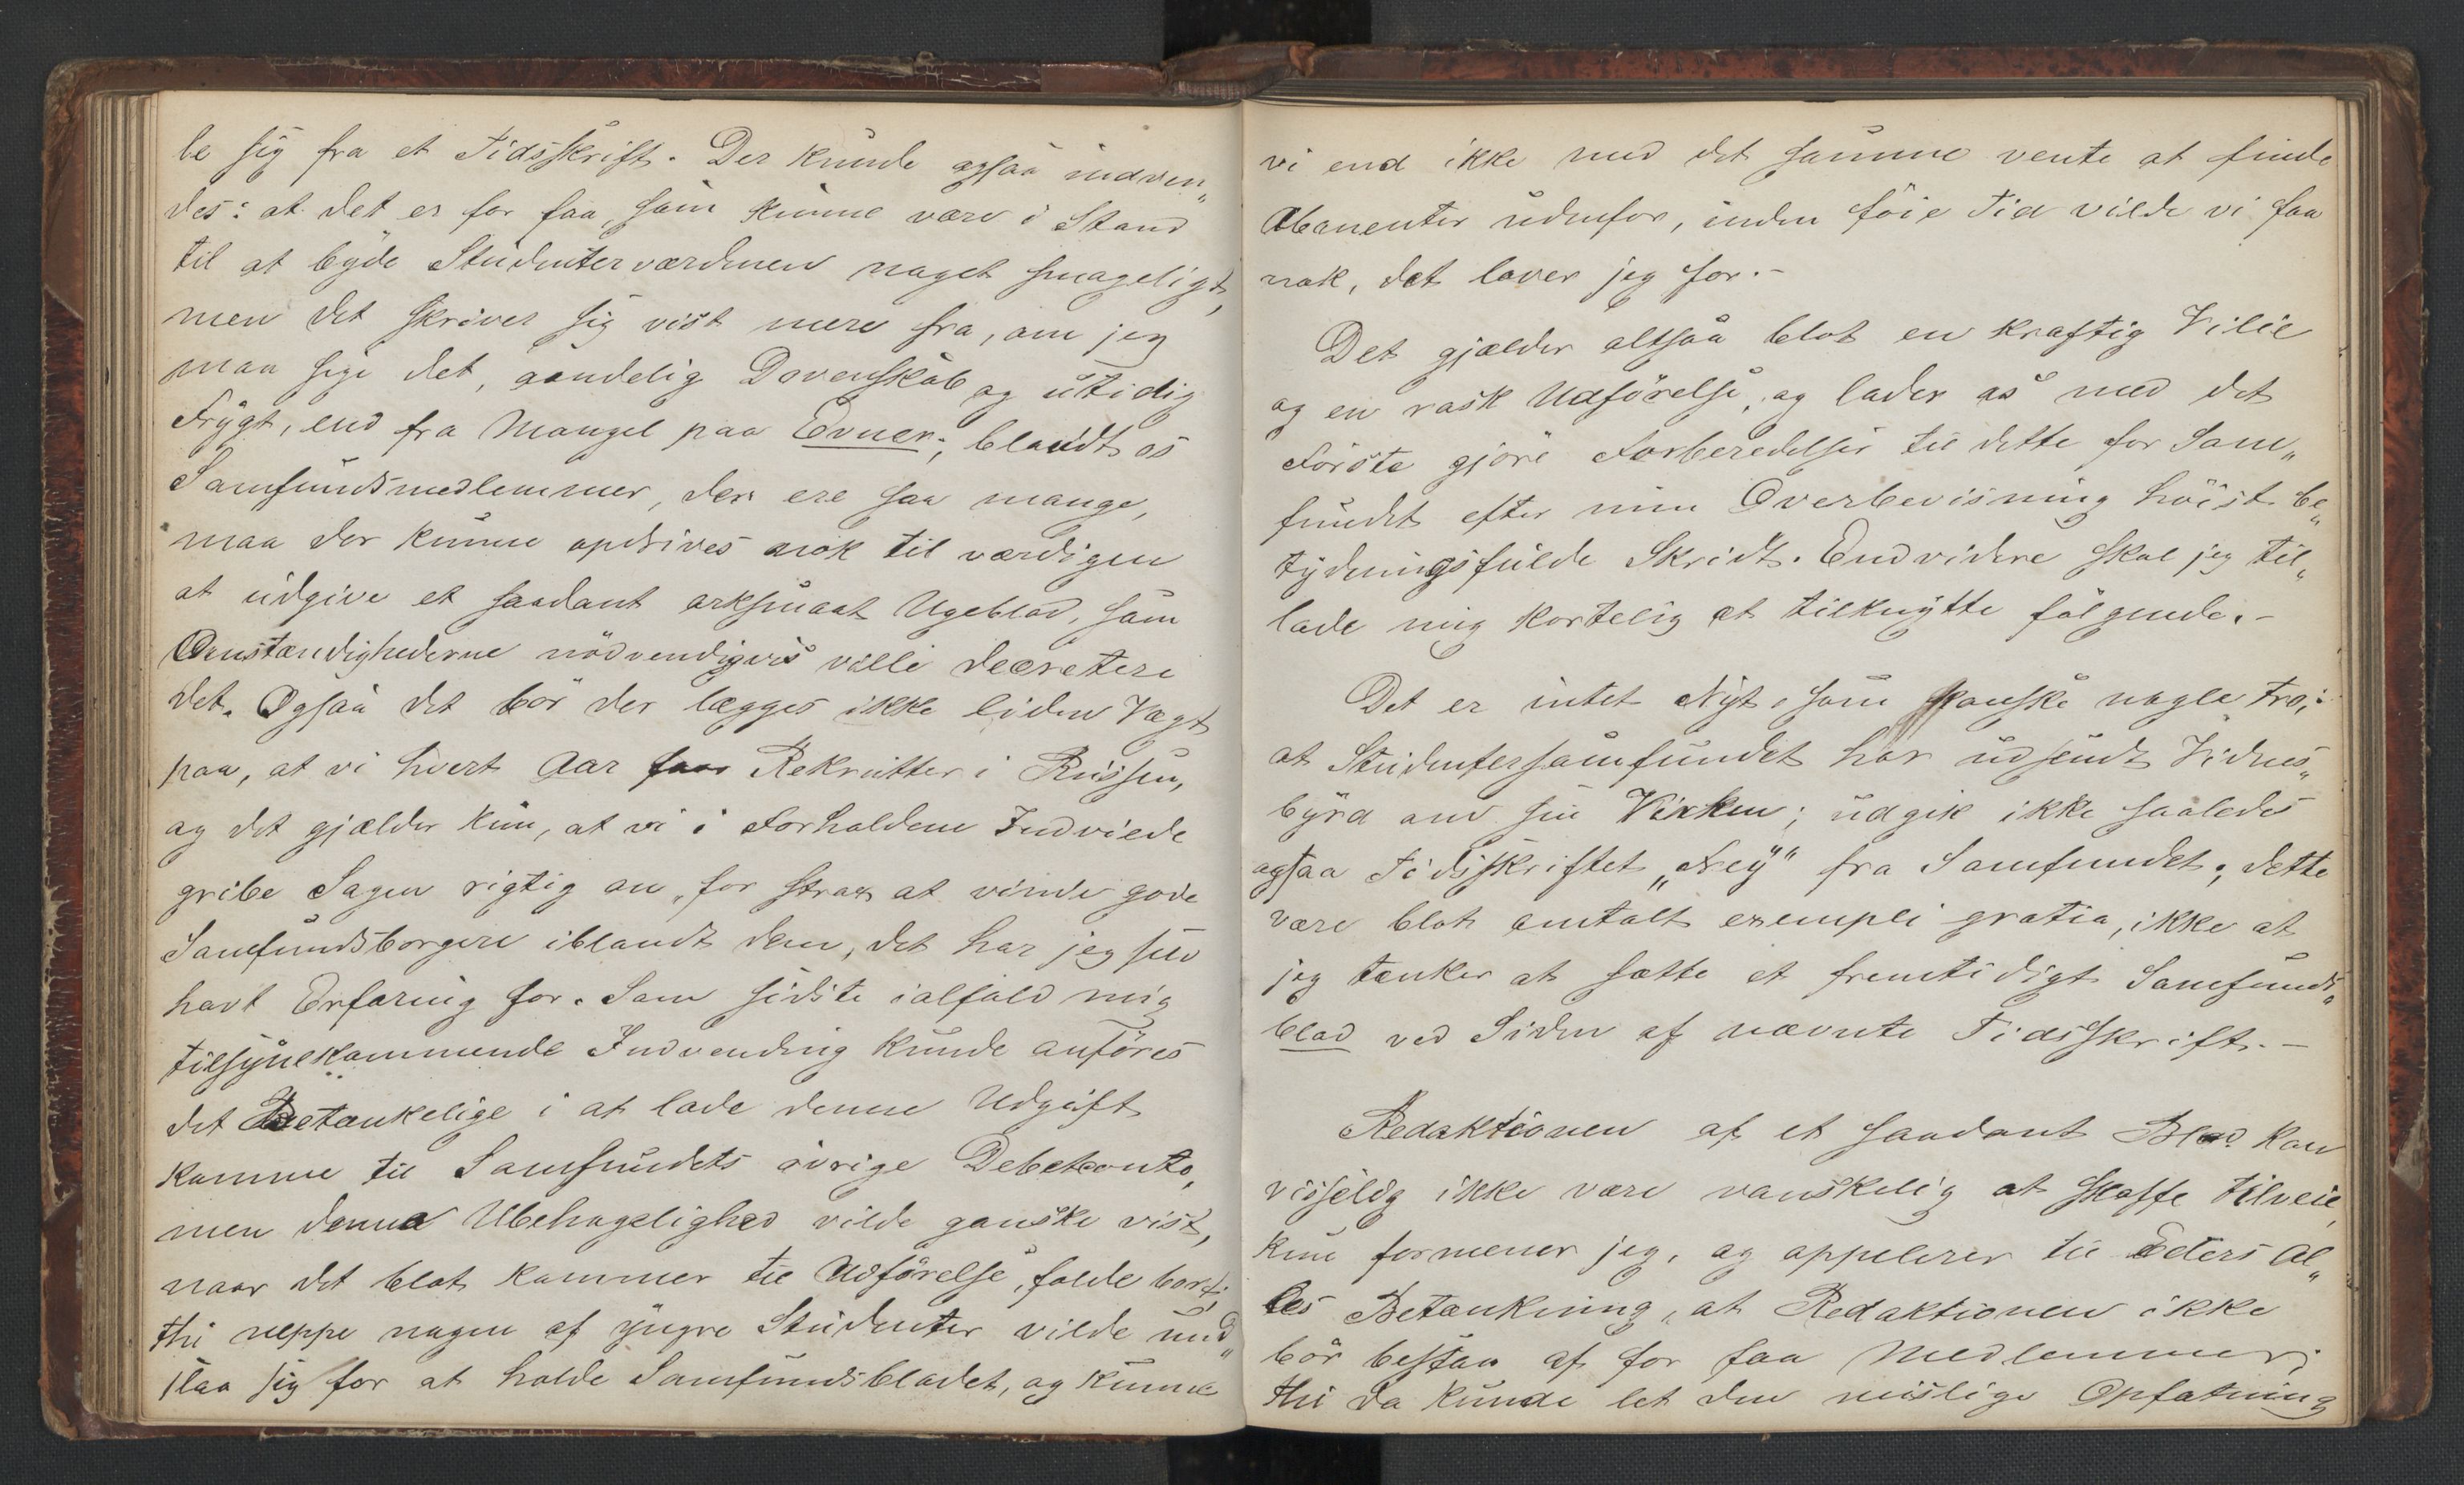 be sig fra et Tidsskrift. Der kunde ogsaa indven„
des: at det er for faa, som kunne være i Stand
til at byde Studenterverdenen noget smageligt,
men det skriver sig vist mere fra, om jeg
maa sige det, aandelig Dovenskab og utidig
Frygt, end fra Mangel paa Evner; blandt os
Samfundsmedlemmer, der ere saa mange,
maa der kunne opdrives nok til værdigen
at udgive et saadant arksmaat Ugeblad, som
Omstændighederne nödvendigvis ville decretere
det. Ogsaa det bör der lægges ikke liden Vægt
paa, at vi hvert Aar faar Rekrutter i Russen,
og det gjælder kun, at vi i Forholdene Indviede
gribe Sagen rigtig an, for strax at vinde gode
Samfundsborgere iblandt dem, det har jeg selv
havt Erfaring for. Som sidste ialfald mig
tilsynekommende Indvending kunde anföres
det Betænkelige i at lade denne Udgift
komme til Samfundets övrige Debetconto,
men denne Ubehagelighed vilde ganske vist,
naar det blot kommer til Udförelse, falde bort;
thi neppe nogen af yngre Studenter vilde und„
slaa sig for at holde Samfundsbladet, og kunne
vi end ikke med det samme vente at finde
Abonenter udenfor, inden föie Tid vilde vi faa
nok, det lover jeg for.-
Det gjælder altsaa blot en kraftig Vilie
og en rask Udförelse, og lader os med det
Förste gjöre Forberedelser til dette for Sam„
fundet efter min Overbevisning höist be„
tydningsfulde Skridt. Endvidere skal jeg til„
lade mig kortelig at tilknytte fölgende.-
Det er intet Nyt, som kanske nogle tro,:
at Studentersamfundet har udsendt Vidnes„
byrd om sin Virken; udgik ikke saaledes
ogsaa Tidsskriftet „Ney“ fra Samfundet; dette
være blot omtalt exempli gratia, ikke at
jeg tænker at sætte et fremtidigt Samfunds„
blad ved Siden af nævnte Tidsskrift.-
Redaktionen af et saadant Blad kan
visselig ikke være vanskelig at skaffe tilveie,
kun formener jeg, og appelerer til Eders Al„
les Betænkning, at Redaktionen ikke
bör bestaa af for faa Medlemmer;
thi da kunde let den mislige Opfatning